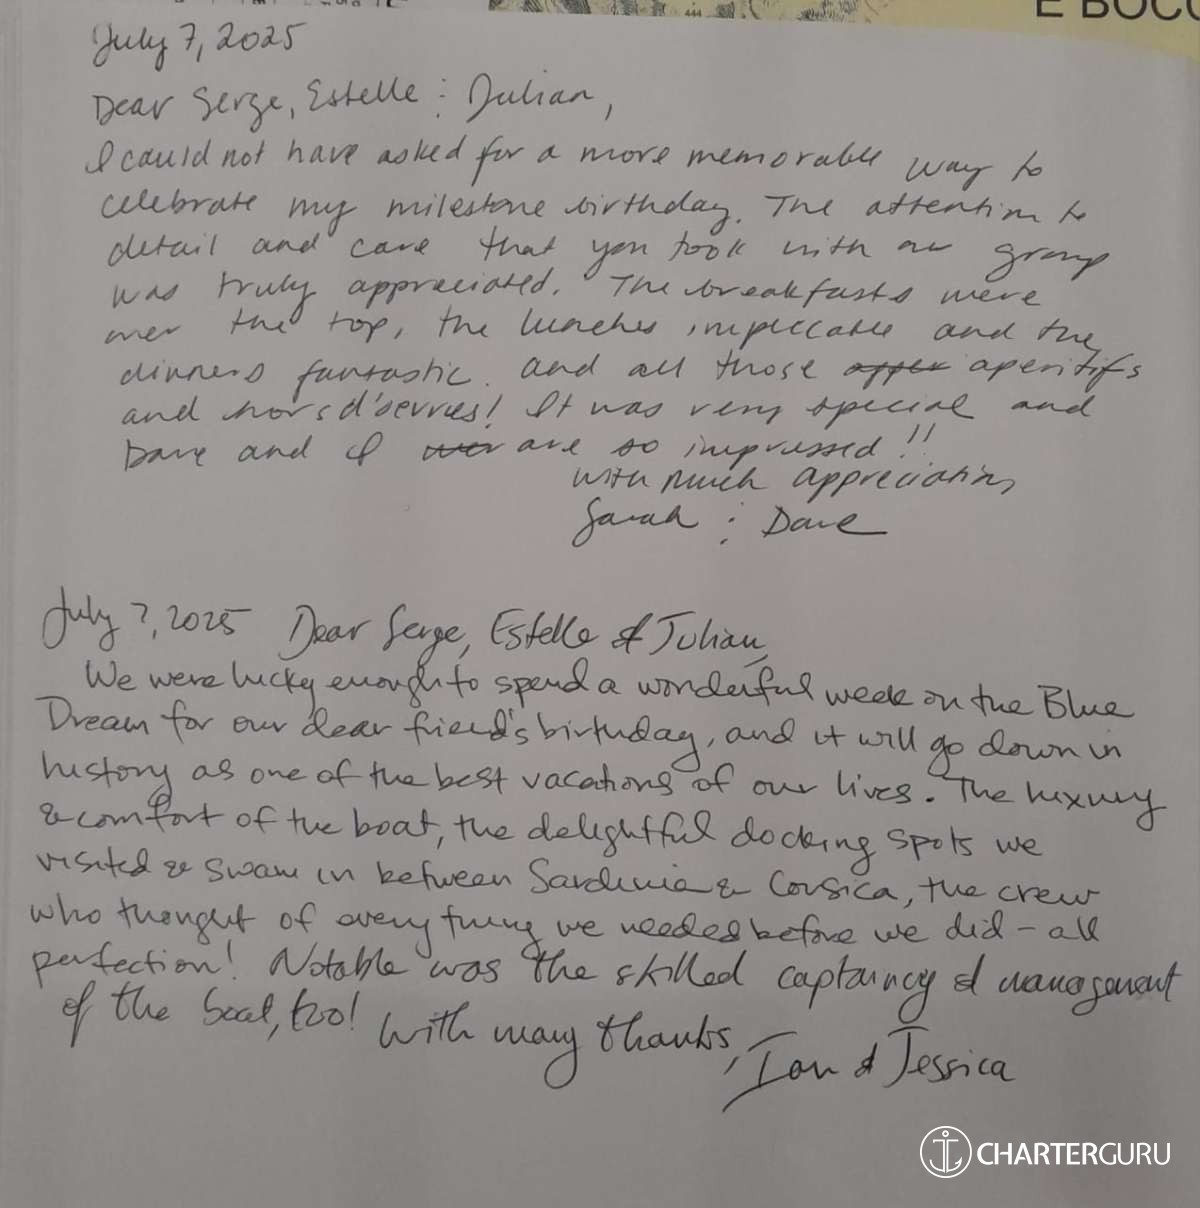 E BOCC
July 7, 2025
Dear Serge, Estelle : Julian,
I could not have asked for a more memorable way to
celebrate my milestone birthday. The attention to
detail and care that you took with our group
was truly appreciated. The breakfasts were
over the top, the lunches impeccable and the
dinners fantastic. and all those aperitifs
and hors d'oerves! It was very special and
Dave and I are so impressed!!
with much appreciation,
Sarah : Dave
July 7, 2025 Dear Serge, Estelle & Julian,
We were lucky enough to spend a wonderful week on the Blue
Dream for our dear friend's birthday, and it will go down in
history as one of the best vacations of our lives. The luxury
& comfort of the boat, the delightful docking spots we
visited & swam in between Sardinia & Corsica, the crew
who thought of everything we needed before we did - all
perfection! Notable was the skilled captaincy & management
of the boat, too! With many thanks,
Ian & Jessica
CHARTERGURU